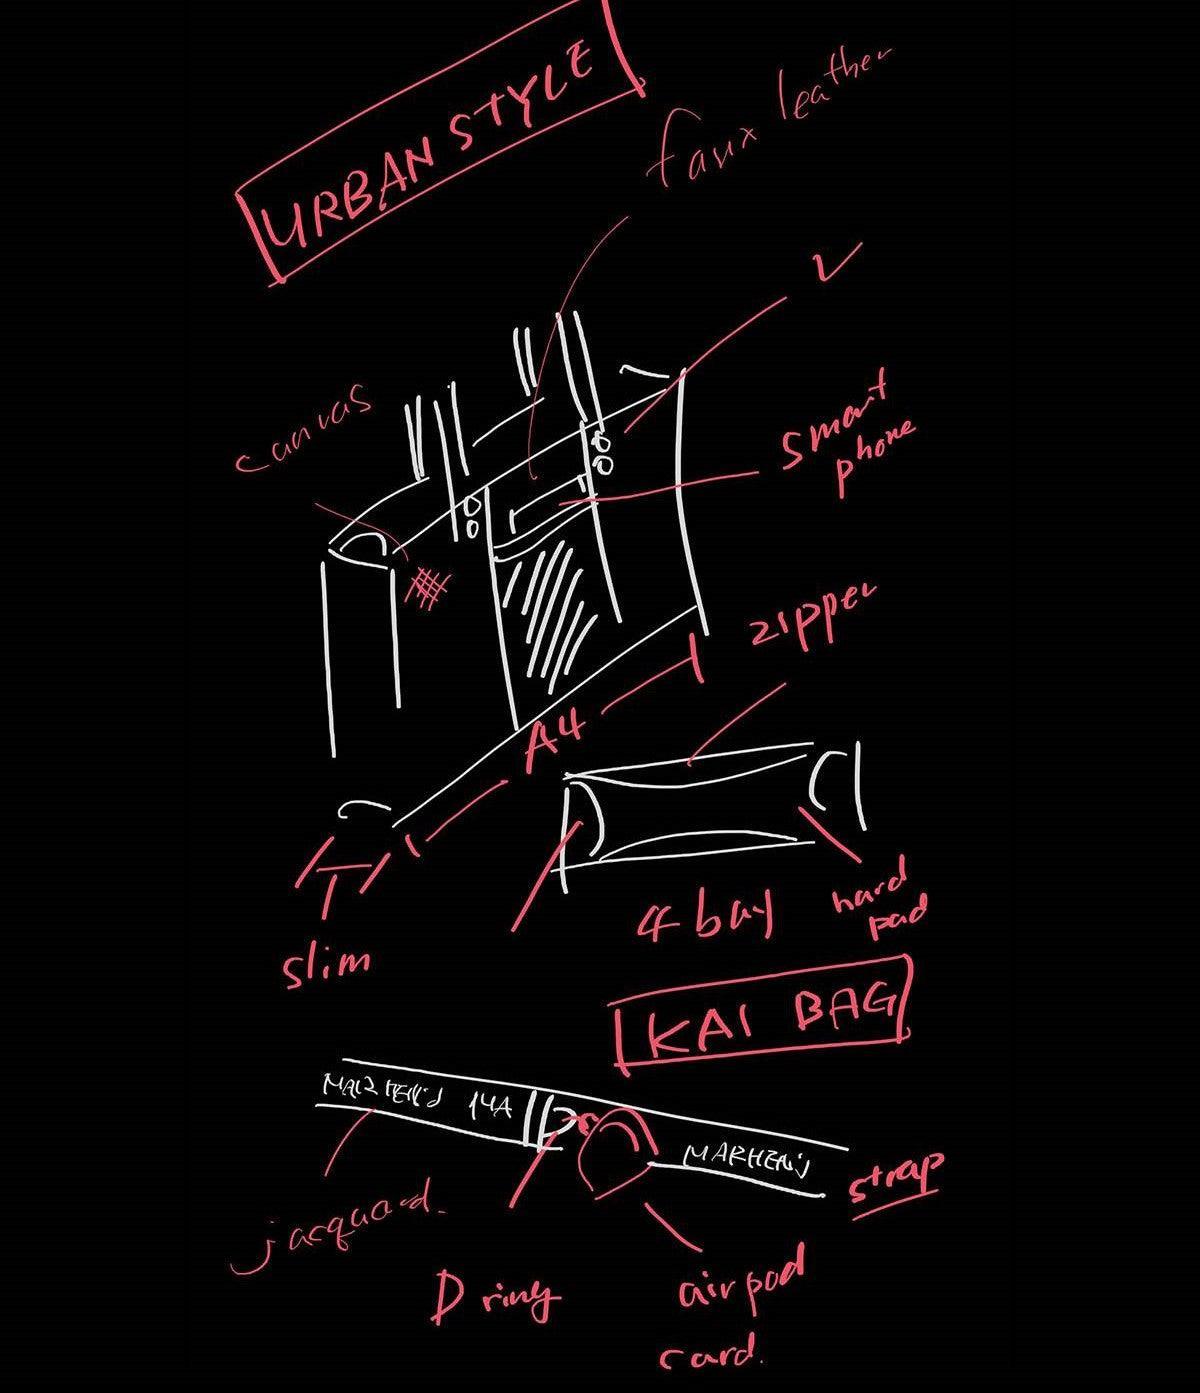 URBAN STYLE
faux leather
canvas
smart
phone
zipper
A4
hard
pad
slim
KAI BAG
MARHEN.J
MARHEN.J
strap
jacquard.
D ring
airpod
card.